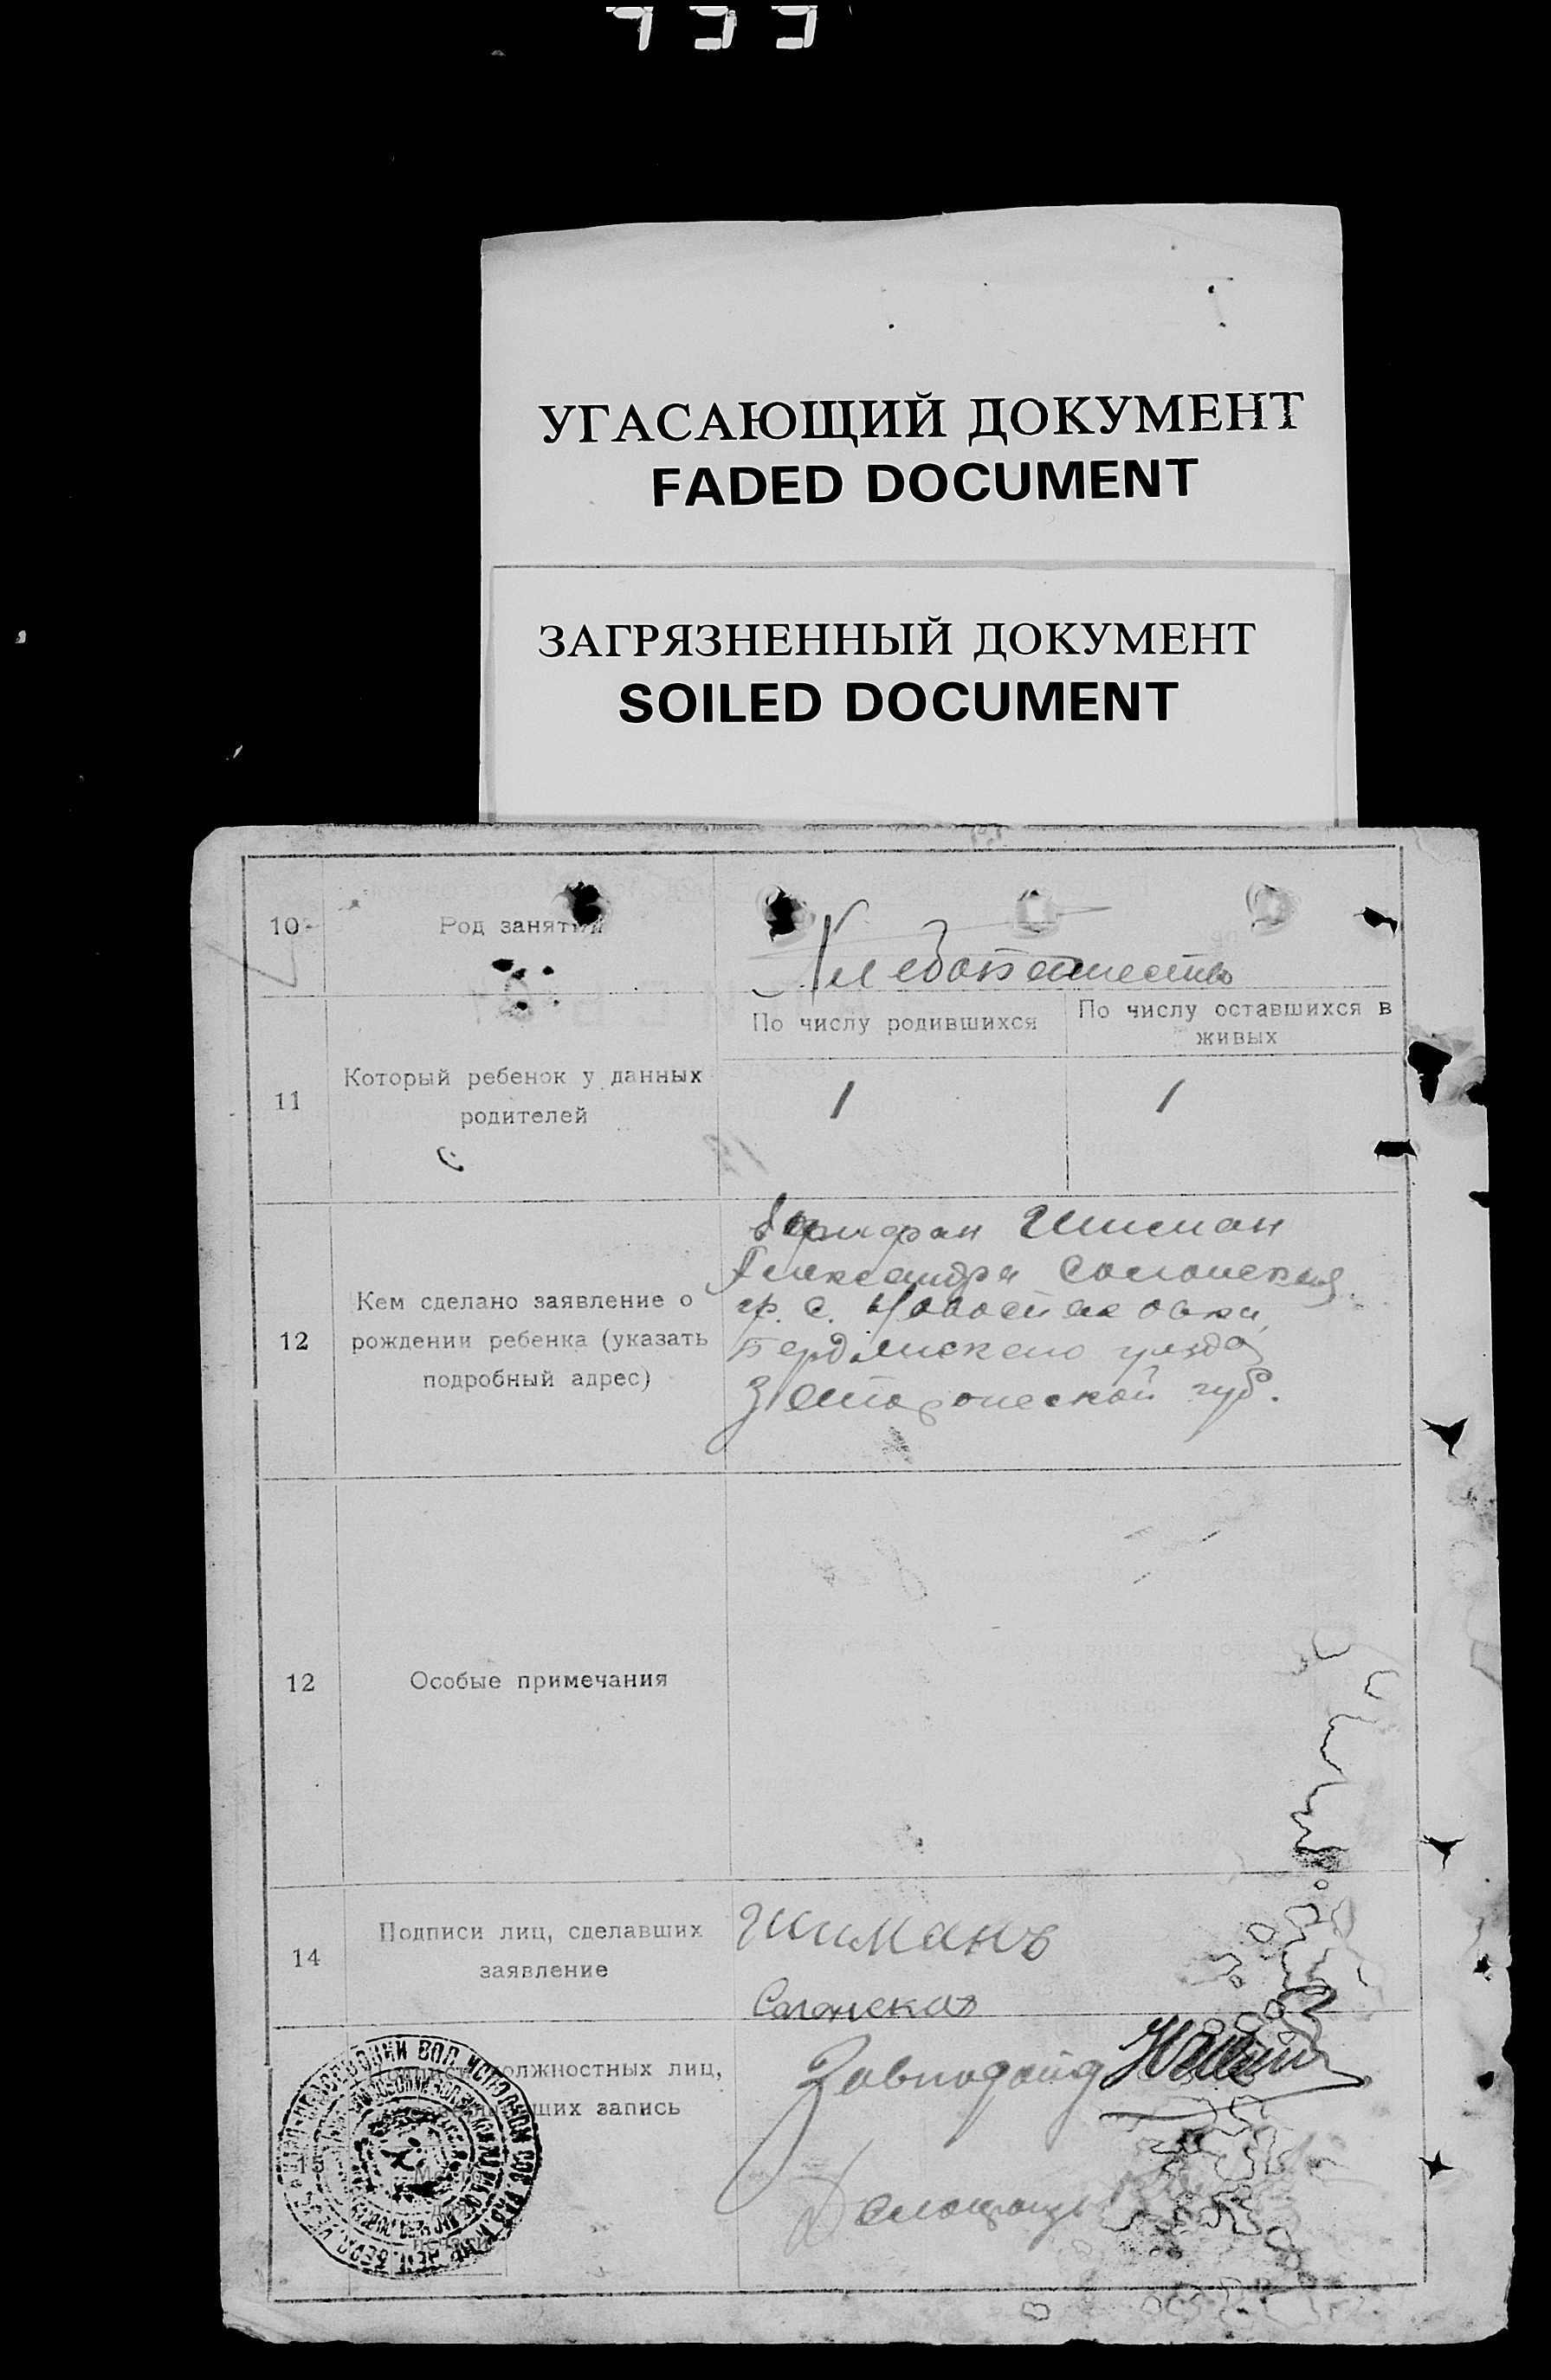 УГАСАЮЩИЙ ДОКУМЕНТ
FADED DOCUMENT
ЗАГРЯЗНЕННЫЙ ДОКУМЕНТ
SOILED DOCUMENT
10
Род занятий
Хлебопашество
11
Который ребенок у данных
родителей
По числу родившихся
По числу оставшихся в
живых
1
1
12
Кем сделано заявление о
рождении ребенка (указать
подробный адрес)
Шишман
Александра
гр. с.
Бердянского уезда
Запорожской губ.
12
Особые примечания
14
Подписи лиц, сделавших
заявление
Шишманъ
должностных лиц,
запись
Завподотд